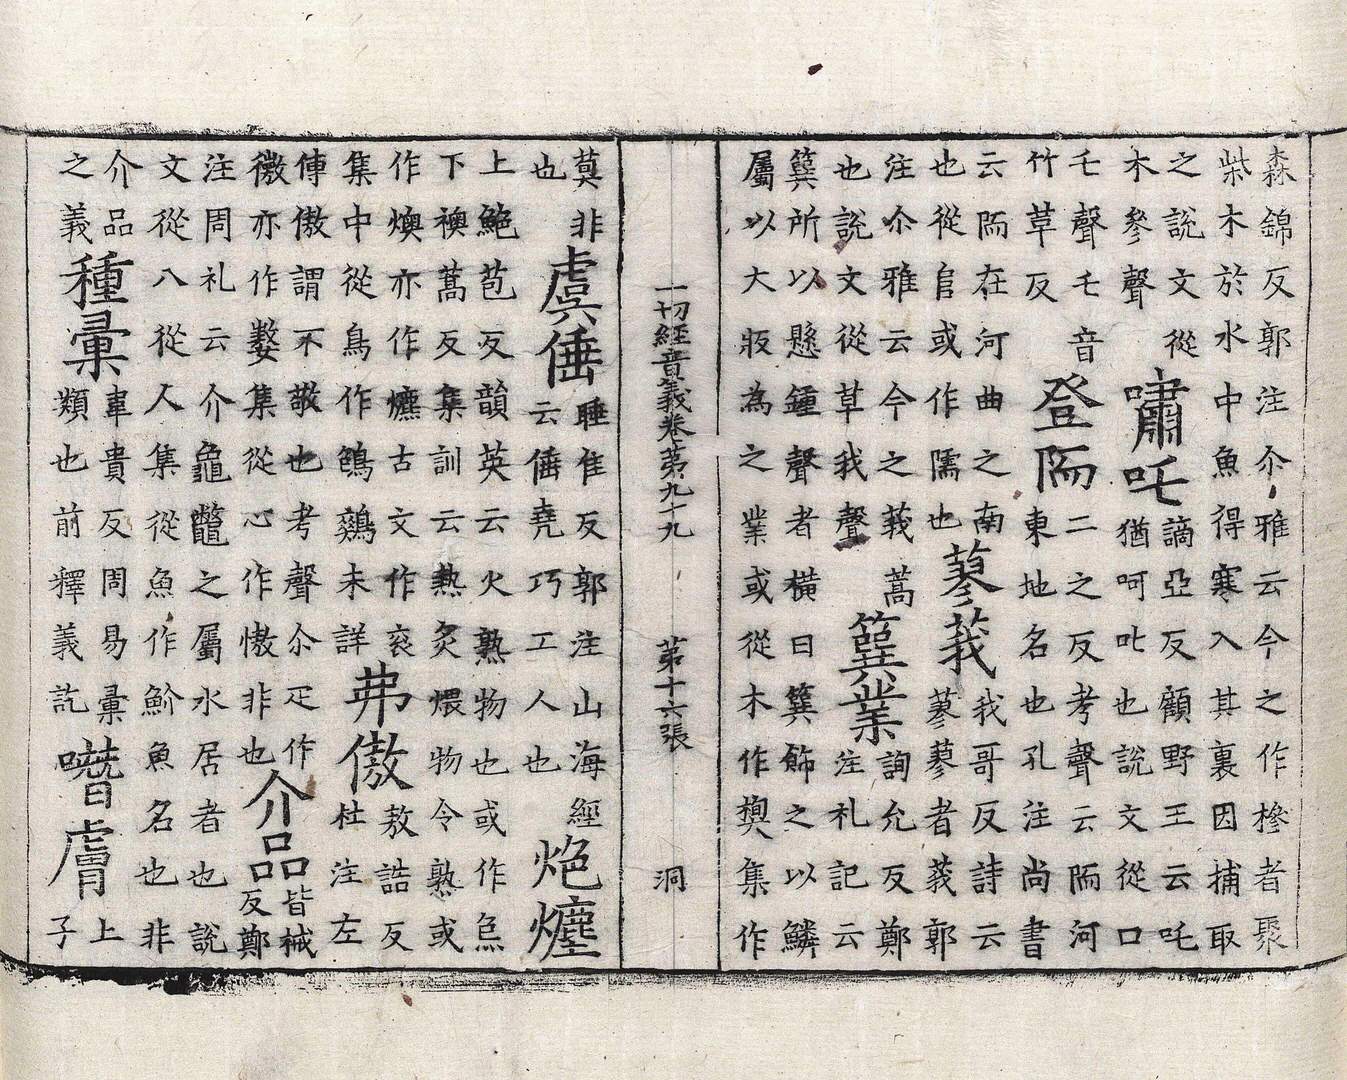 森錦反郭注尒雅云今之作槮者聚
柴木於水中魚得寒入其裏因捕取
之說文從
木參聲
嘯吒
謫亞反顧野王云吒
猶呵叱也說文從口
乇聲乇音
竹草反
登陑
二之反考聲云陑河
東地名也孔注尚書
云陑在河曲之南
也從𨸏或作隭也
蓼莪
我哥反詩云
蓼蓼者莪郭
注尒雅云今之莪蒿
也說文從草我聲
簨業
詢允反鄭
注礼記云
簨所以懸鍾聲者橫曰簨飾之以鱗
屬以大版為之業或從木作㯢集作
一切經音義卷第九十九 第十六張 洞
莫非
也
虞倕
睡隹反郭注山海經
云倕堯巧工人也
炮爊
上鮑苞反韻英云火熟物也或作炰
下襖蒿反集訓云熱炙煨物令熟或
作燠亦作爊古文作
集中從鳥作鷄未詳
弗傲
敖誥反
杜注左
傳傲謂不敬也考聲尒疋作
微亦作嫯集從心作慠非也
介品
皆械
反鄭
注周礼云介龜鼈之屬水居者也說
文從八從人集從魚作魪魚名也非
介品
之義
種彙
韋貴反周易彙
類也前釋義訖
膚
上
子